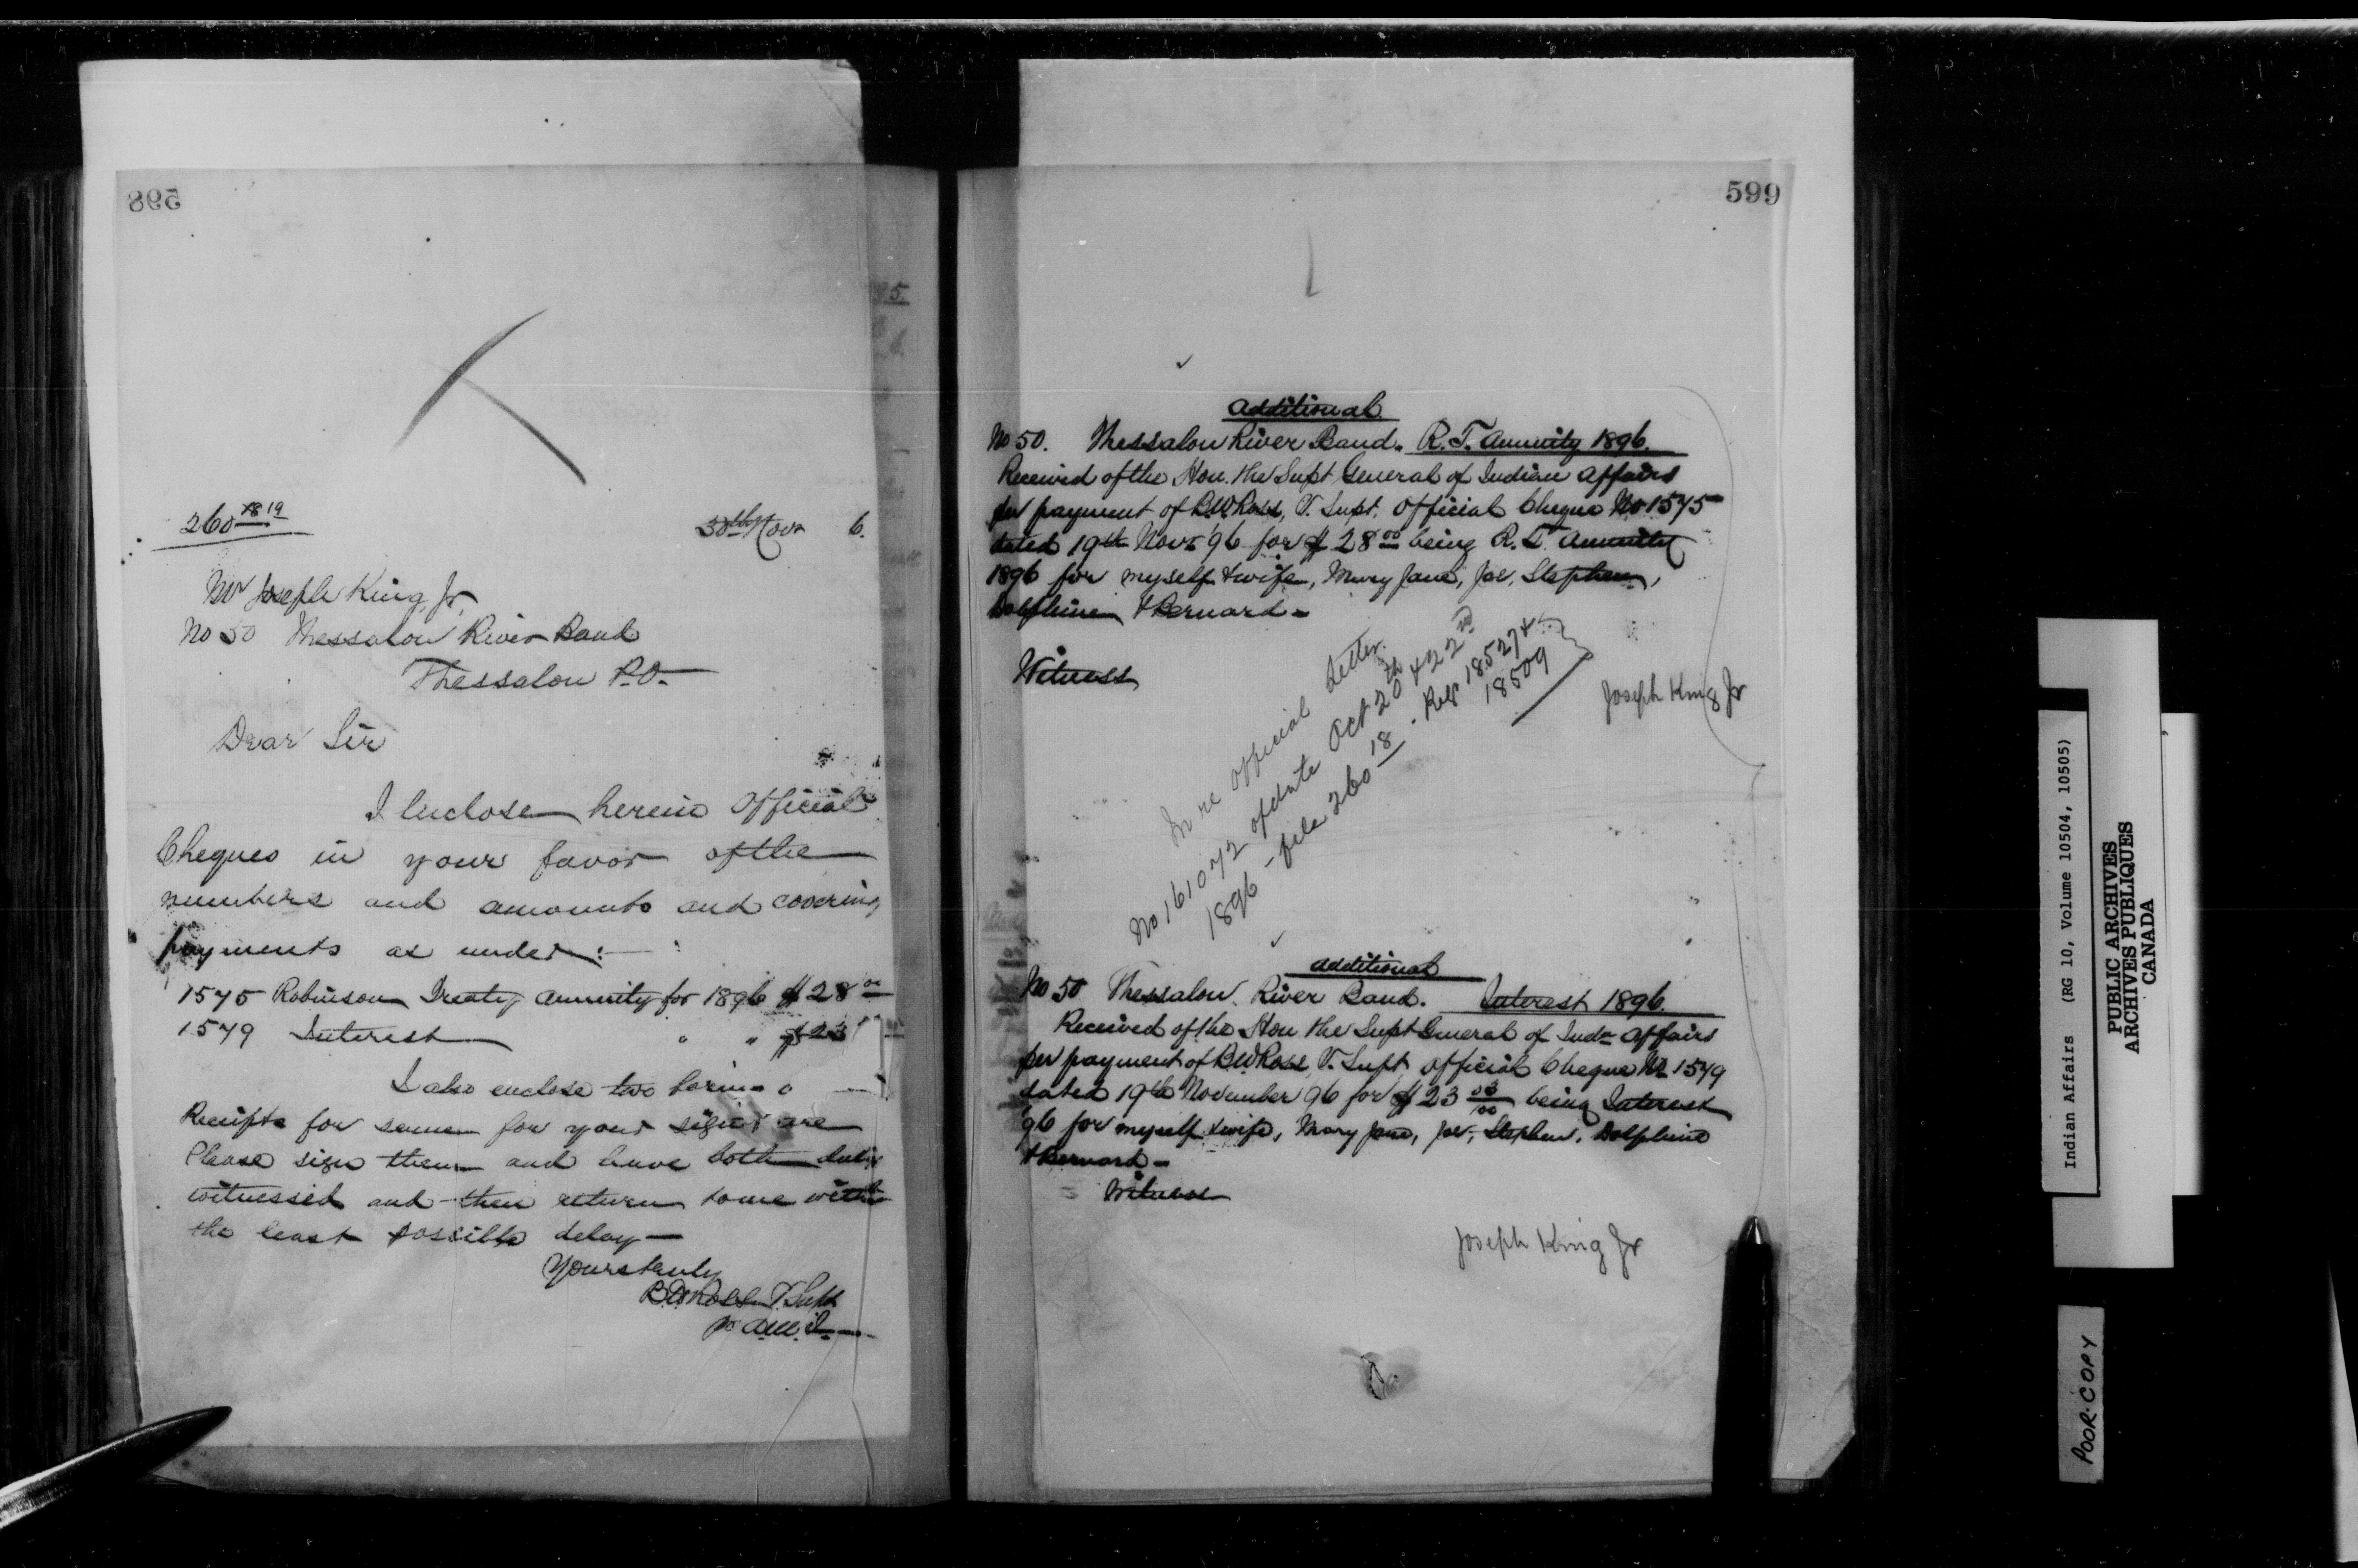 598
260 18 19
30th Novr 6.
Mr Joseph King, Jr.
No 50 Thessalon River Band
Thessalon P.O.
Dear Sir
I Inclose herein Official
Cheques in your favor of the
numbers and amounts and covering
payments as under:—
1575 Robinson Treaty Annuity for 1896 $28 00
1579 Interest " " $23
I also enclose two forms o
Receipts for same for your signature
Please sign them and have both duly
witnessed and then return to me with
the least possible delay—
Yours truly
B.W. Ross V. Supt
599
Additional
No 50. Thessalon River Band. R.T. Annuity 1896.
Received of the Hon. the Supt General of Indian Affairs
per payment of B.W. Ross, V. Supt. Official Cheque No 1575
dated 19th Novr 96 for $28 00 being R.T. Annuity
1896 for myself & wife, Mary Jane, Joe, Stephen,
Dolphine & Bernard—
Witness
Joseph King Jr
In re official letter.
No 161072 of date Oct 20th & 22nd
1896 - file 260 18 - Reqr 18527 &
18509
Additional
No 50 Thessalon River Band. Interest 1896.
Received of the Hon the Supt General of Indn Affairs
per payment of B.W. Ross, V. Supt Official Cheque No 1579
dated 19th November 96 for $23 03/100 being Interest
96 for myself & wife, Mary Jane, Joe, Stephen, Dolphine
& Bernard—
Witness
Joseph King Jr
Indian Affairs (RG 10, Volume 10504, 10505)
PUBLIC ARCHIVES
ARCHIVES PUBLIQUES
CANADA
POOR COPY